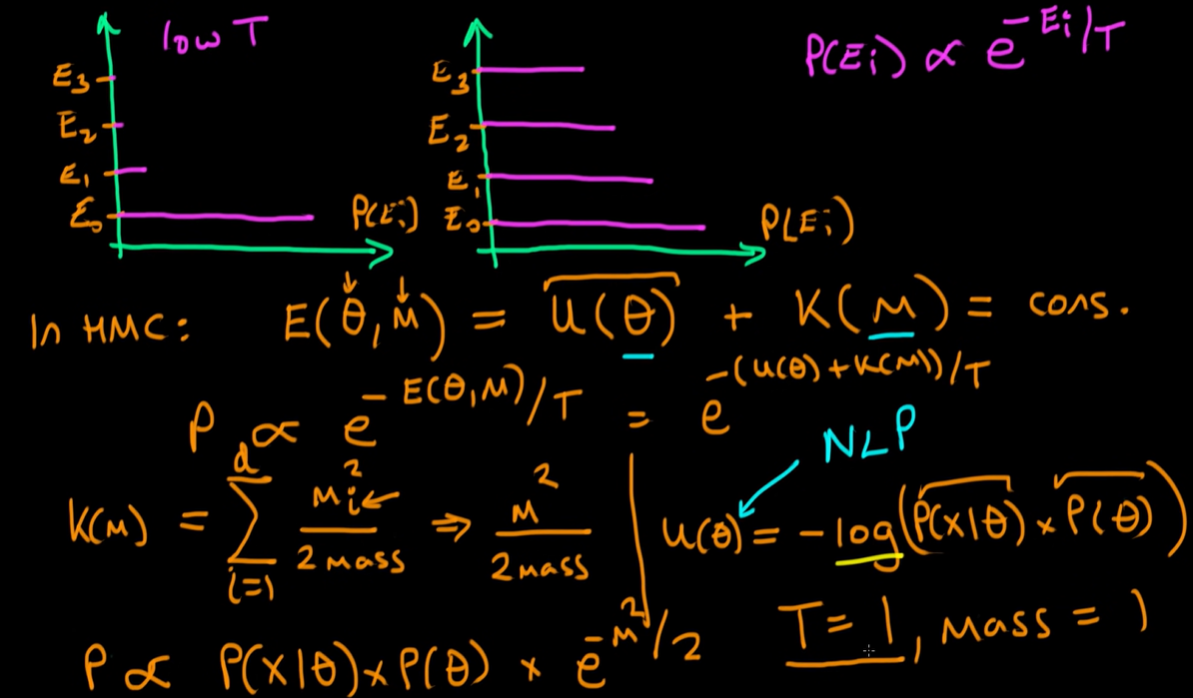 low T
E₃
E₂
E₁
E₀
P(Eᵢ)
E₃
E₂
E₁
E₀
P(Eᵢ)
P(Eᵢ) ∝ e^(-Eᵢ/T)
In HMC: E(θ,M) = U(θ) + K(M) = cons.
P ∝ e^(-E(θ,M)/T) = e^(-(U(θ)+K(M))/T)
NLP
K(M) = ∑_{i=1}^{d} Mᵢ²/2mass ⇒ M²/2mass
U(θ) = -log(P(X|θ)×P(θ))
T=1, Mass = 1
P ∝ P(X|θ)×P(θ) × e^(-M²/2)